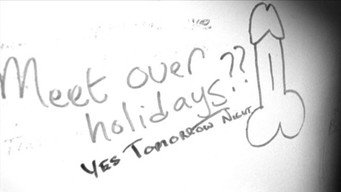 Meet over
holidays??
YES TOMORROW NIGHT